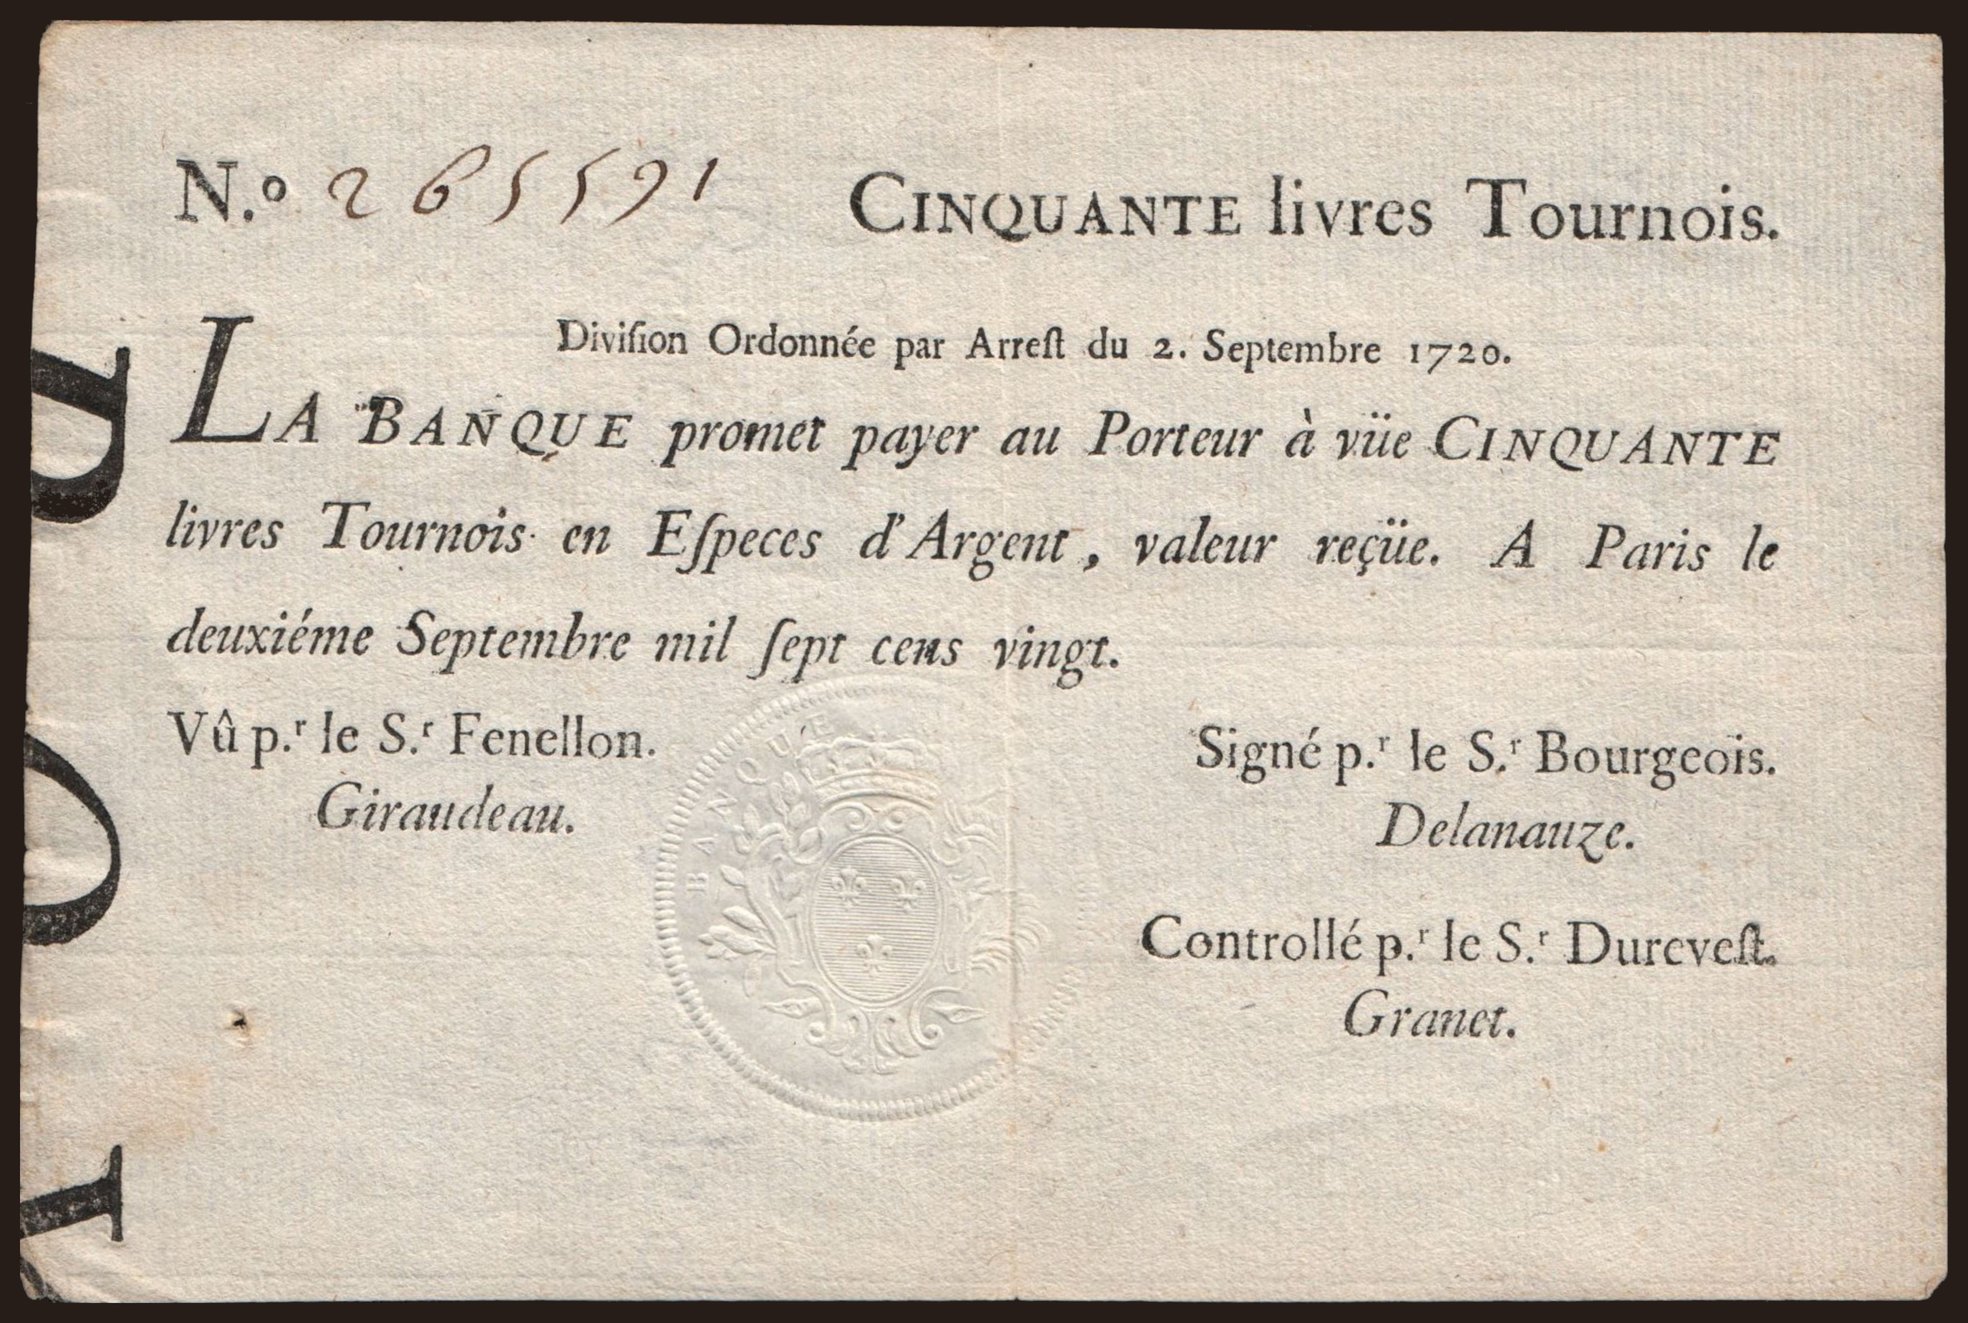 N.º 265591 CINQUANTE livres Tournois.
Diviſion Ordonnée par Arreſt du 2. Septembre 1720.
LA BANQUE promet payer au Porteur à vüe CINQUANTE
livres Tournois en Eſpeces d'Argent, valeur reçüe. A Paris le
deuxiéme Septembre mil ſept cens vingt.
Vû p.r le S.r Fenellon.
Giraudeau.
Signé p.r le S.r Bourgeois.
Delanauze.
Controllé p.r le S.r Dureveſt.
Granet.
BANQUE